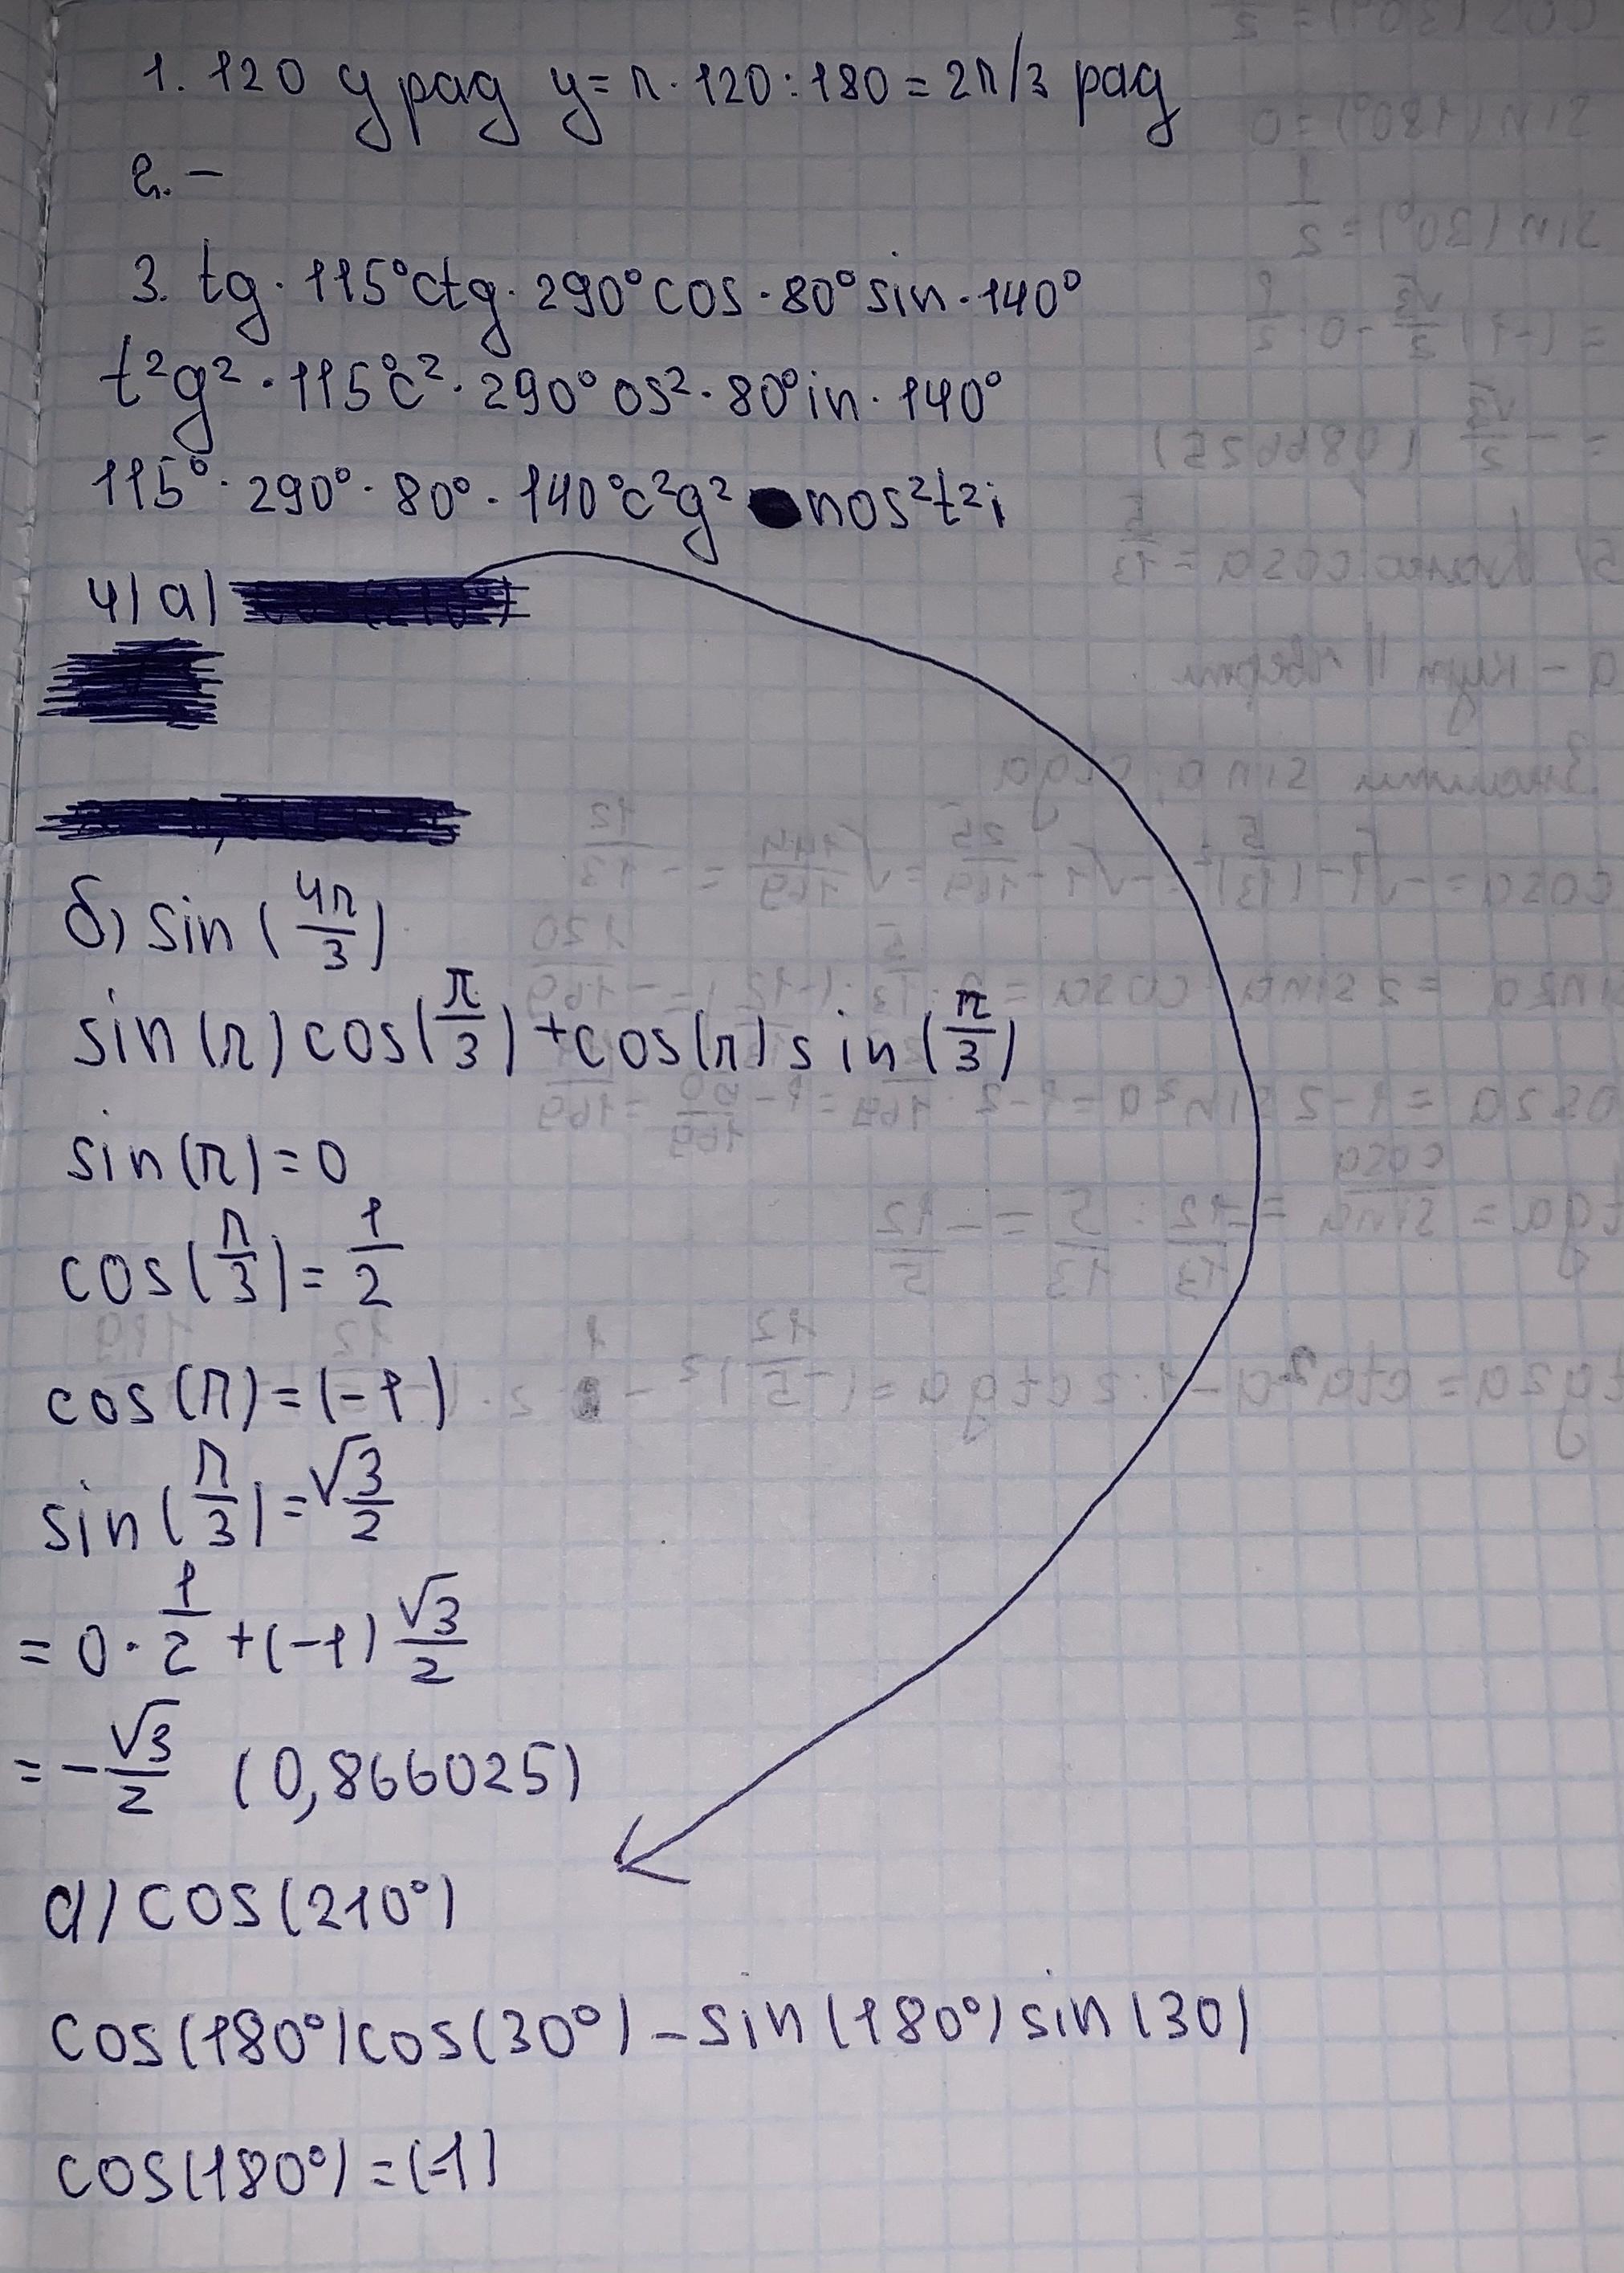 1. 120 у рад y = π · 120 : 180 = 2π/3 рад
2. –
3. tg · 115°ctg · 290°cos · 80°sin · 140°
t²g² · 115°c² · 290°os² · 80°in · 140°
115° · 290° · 80° · 140°c²g² nos²t²i
4) а)
б) sin (4π/3)
sin(π) cos(π/3) + cos(π) sin(π/3)
sin(π) = 0
cos(π/3) = 1/2
cos(π) = (-1)
sin(π/3) = √3/2
= 0 · 1/2 + (-1) √3/2
= - √3/2 (0,866025)
а) cos(210°)
cos(180°)cos(30°) - sin(180°) sin(30)
cos(180°) = (-1)